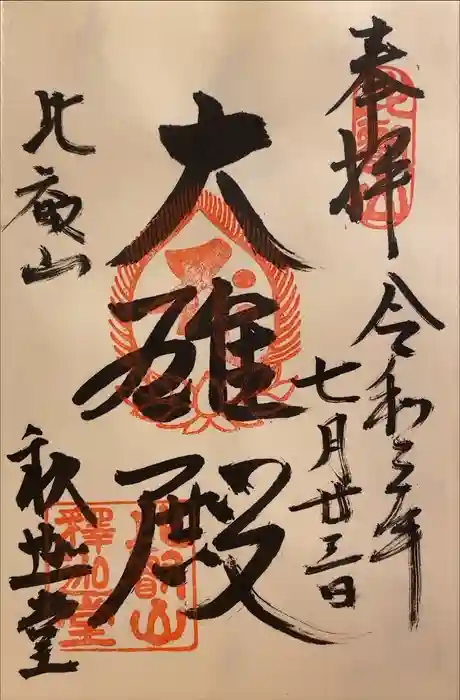 奉拝
令和三年
七月廿三日
大雄殿
比叡山
釈迦堂
比叡山
釋迦堂